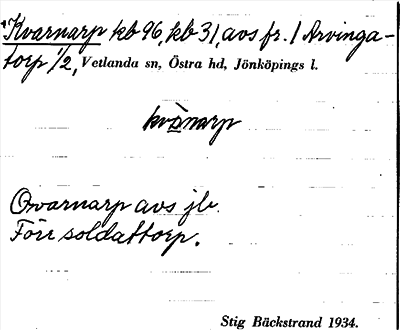 Kvarnarp kb 96, kb 31, avs fr. 1 Arvinga-
torp 1/2, Vetlanda sn, Östra hd, Jönköpings l.
kvänarp
Ovarnarp avs jb.
Förr soldattorp.
Stig Bäckstrand 1934.